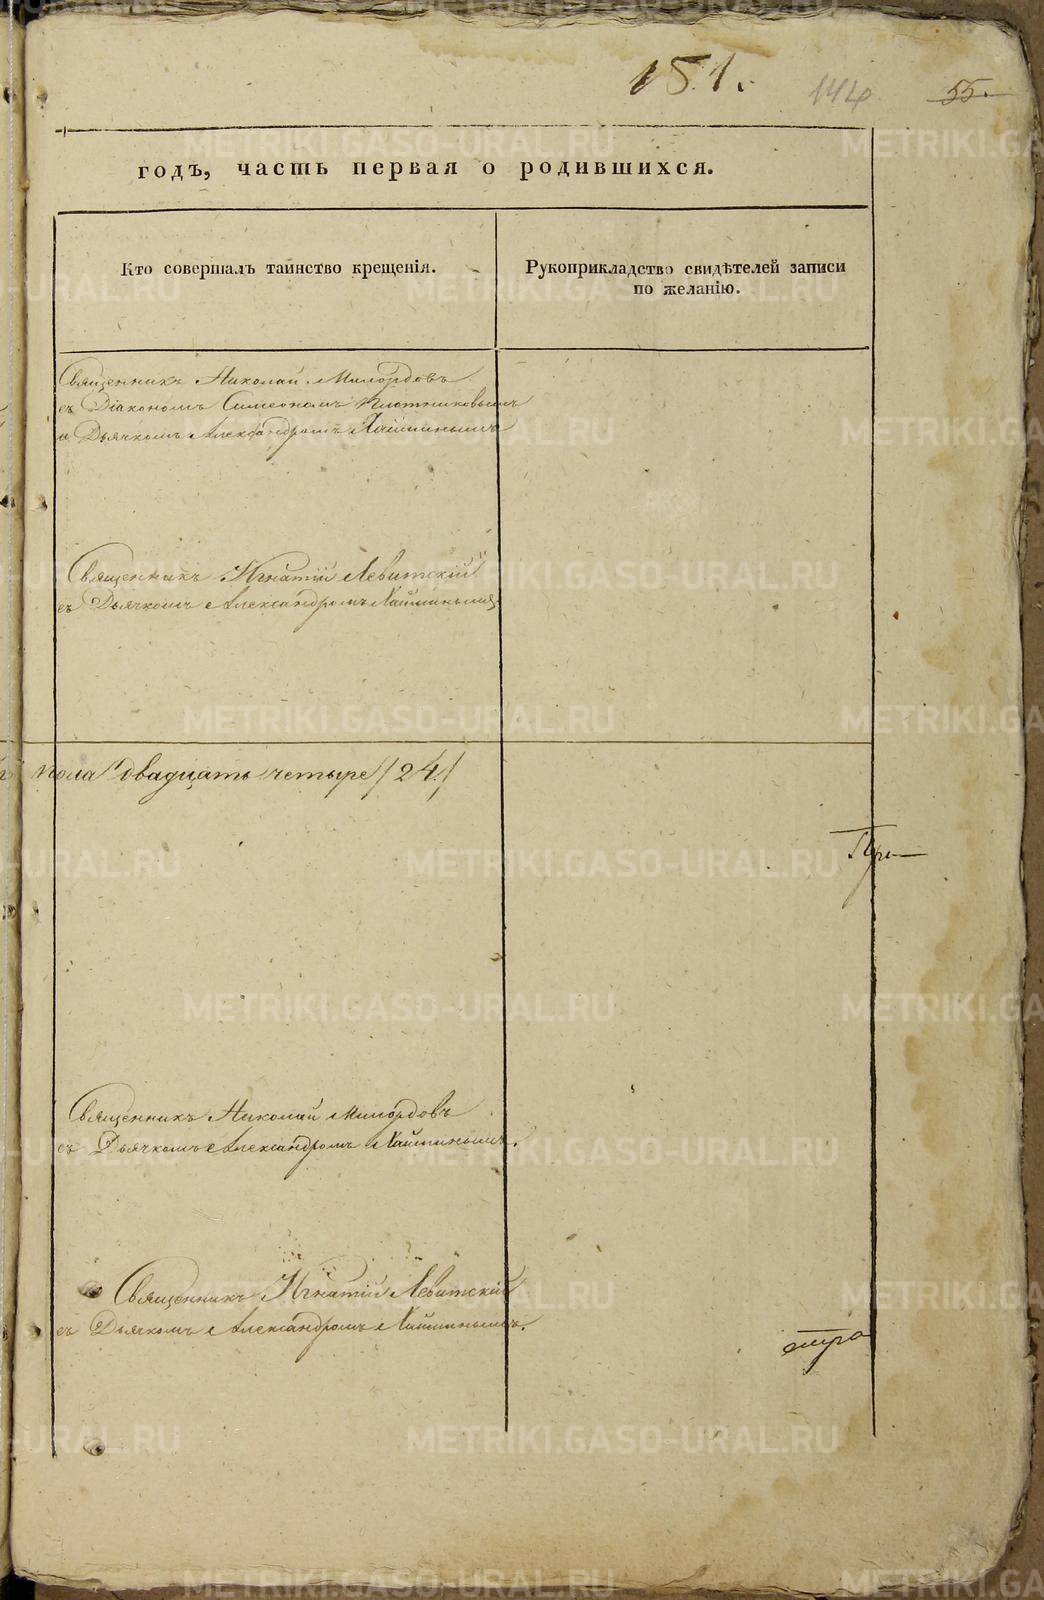 151.
144
55.
годъ, часть первая о родившихся.
Кто совершалъ таинство крещенія.
Рукоприкладство свидѣтелей записи
по желанію.
Священникъ Николай Милордовъ
съ Діакономъ Симеономъ Плотниковымъ
и Дьячкомъ Александромъ
Священникъ Игнатій Левитскій
съ Дьячкомъ Александромъ
пола двадцать четыре /24/
Священникъ Николай Милордовъ
съ Дьячкомъ Александромъ
Священникъ Игнатій Левитскій
съ Дьячкомъ Александромъ
METRIKI.GASO-URAL.RU